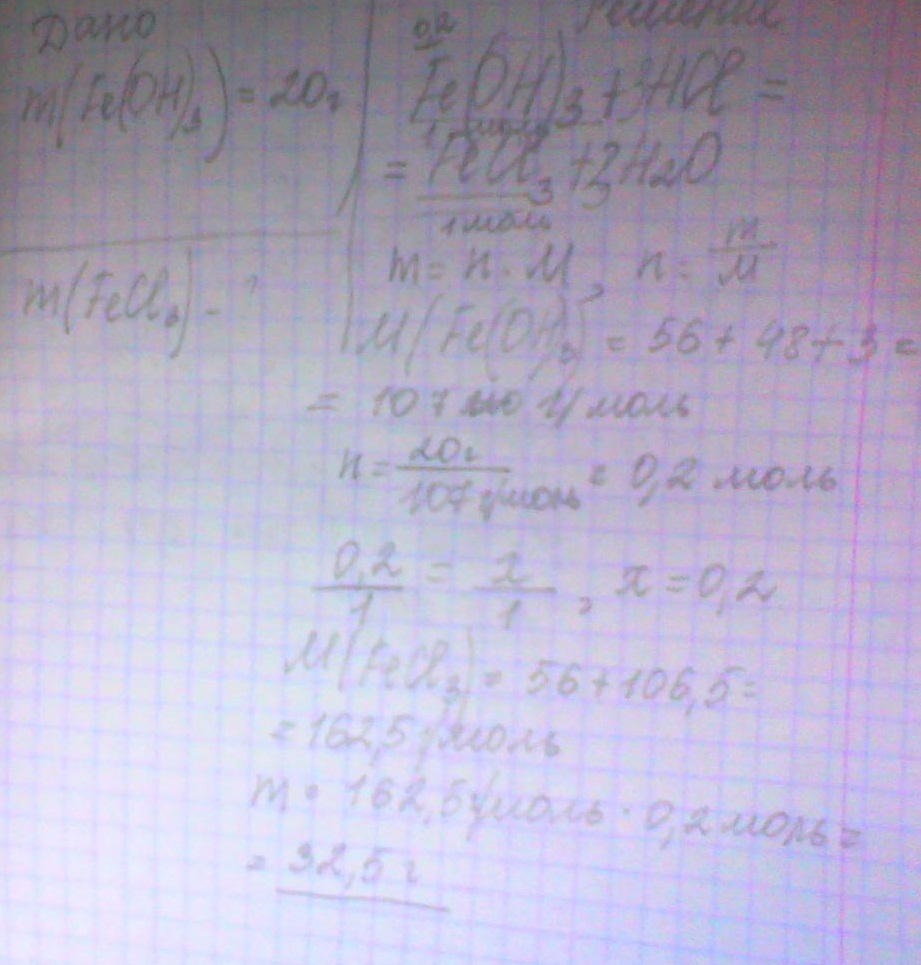 Дано
m(Fe(OH)3) = 20г
m(FeCl3) - ?
Решение
0,2
Fe(OH)3 + 3HCl =
1 моль
= FeCl3 + 3H2O
1 моль
m = n · M, n = m/M
M(Fe(OH)3) = 56 + 48 + 3 =
= 107 г/моль
n = 20г/107 г/моль = 0,2 моль
0,2/1 = x/1, x = 0,2
M(FeCl3) = 56 + 106,5 =
= 162,5 г/моль
m = 162,5 г/моль · 0,2 моль =
= 32,5 г